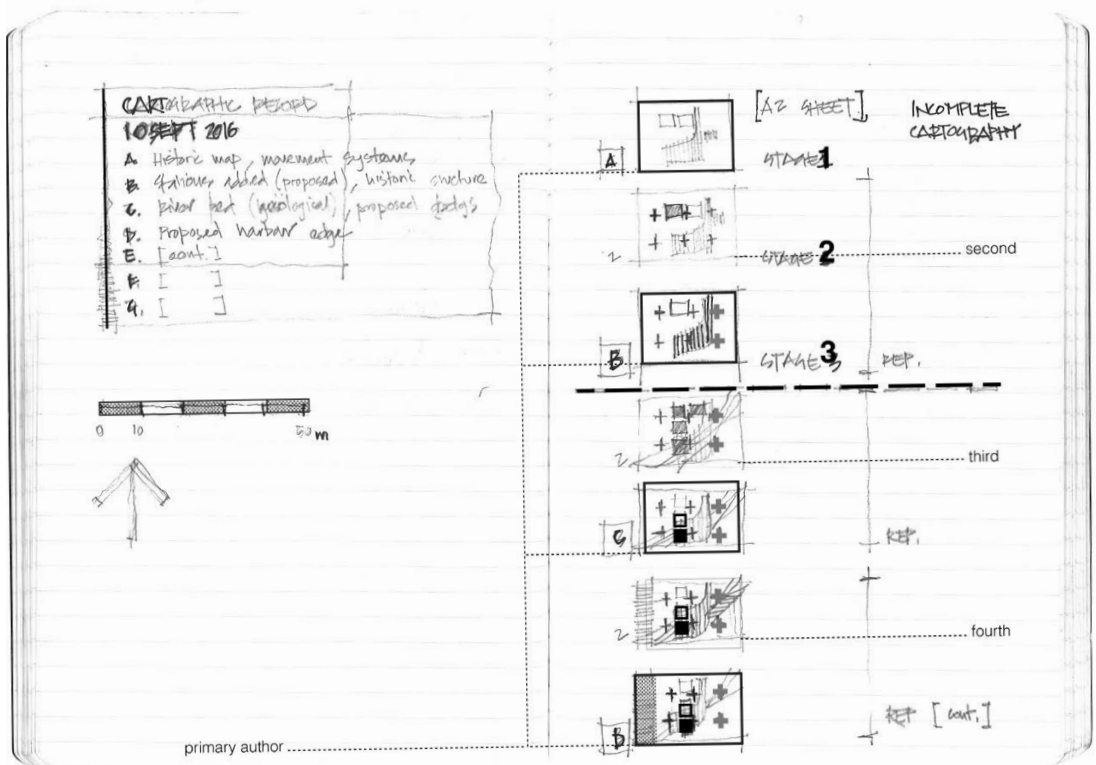 CARTOGRAPHIC RECORD
10 SEPT 2016
A. Historic map, movement systems
B. Stations added (proposed), historic structure
C. River bed (geological), proposed
D. Proposed harbour edge
E. [cont.]
F. [ ]
G. [ ]
0 10 50 m
primary author
[A2 SHEET]
INCOMPLETE
CARTOGRAPHY
A
STAGE 1
2
STAGE 2
second
B
STAGE 3
REP.
2
third
C
REP.
2
fourth
D
REP [cont.]